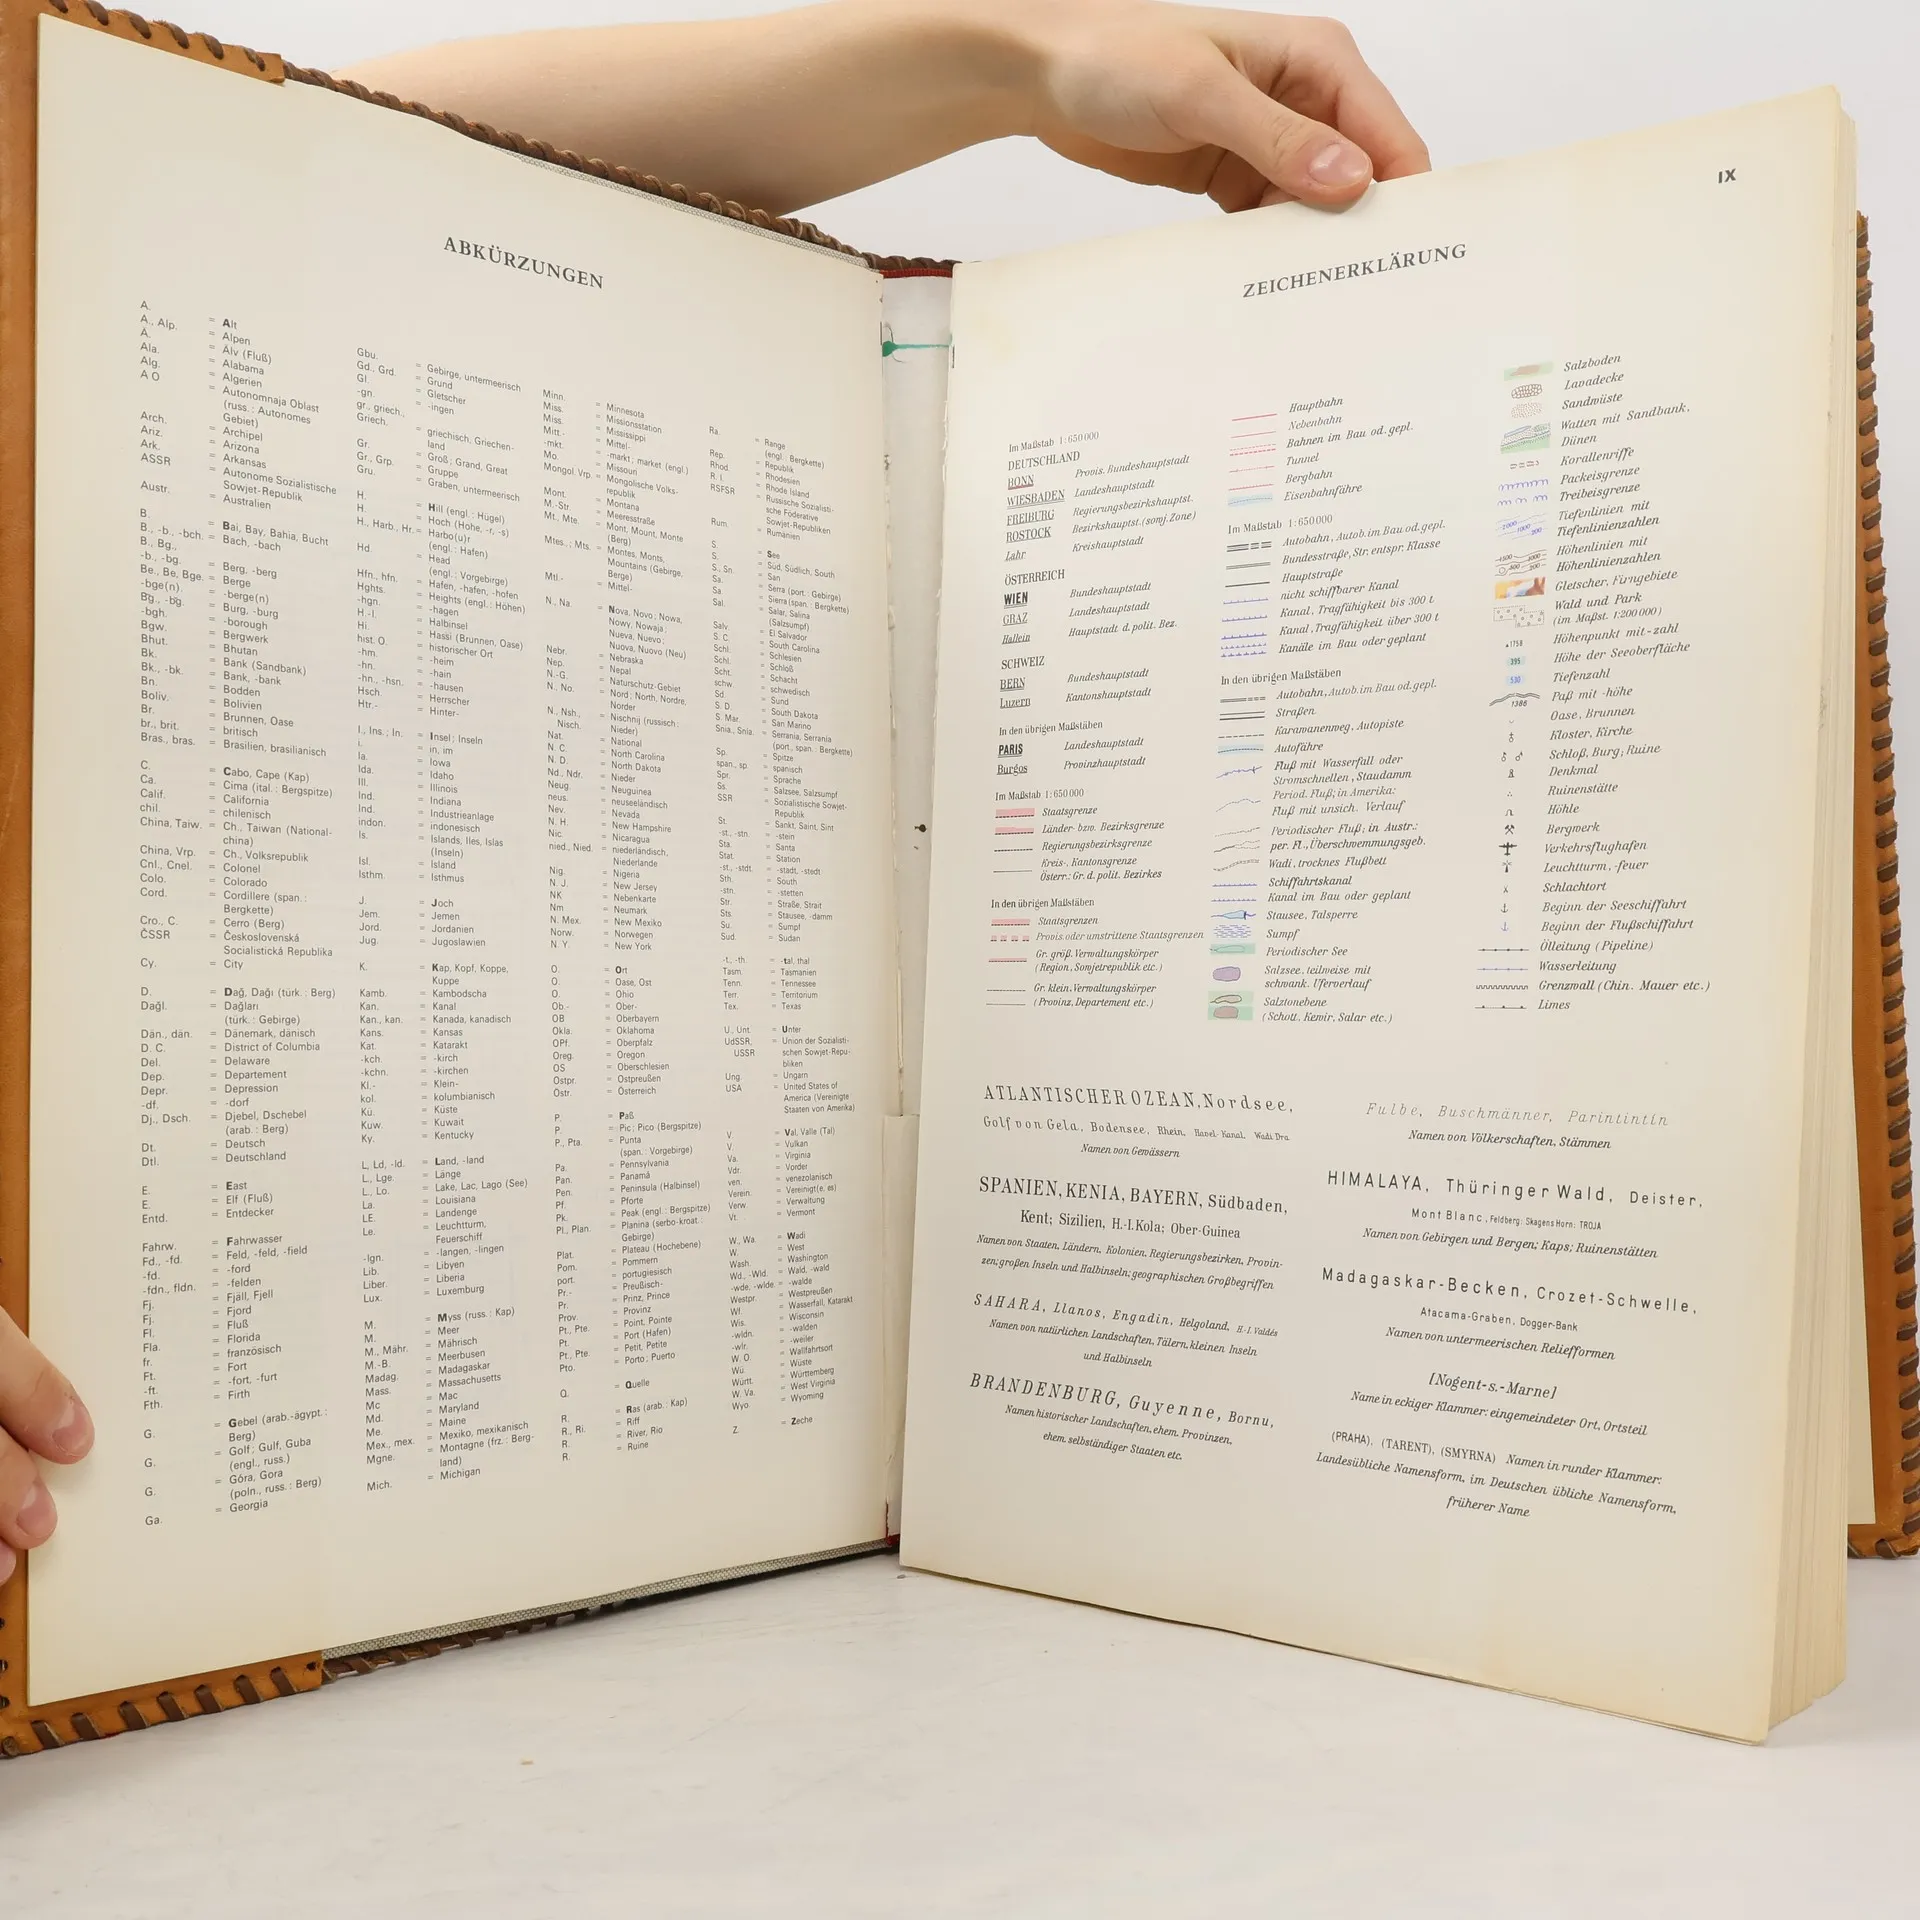 ABKÜRZUNGEN
A. = Alt
A., Alp. = Alpen
Ä. = Älv (Fluß)
Ala. = Alabama
Alg. = Algerien
A O = Autonomnaja Oblast
(russ.: Autonomes
Gebiet)
Arch. = Archipel
Ariz. = Arizona
Ark. = Arkansas
ASSR = Autonome Sozialistische
Sowjet-Republik
Austr. = Australien
B. = Bai, Bay, Bahia, Bucht
B., -b., -bch. = Bach, -bach
B., Bg.,
-b., -bg. = Berg, -berg
Be., Be, Bge. = Berge
-bge(n) = -berge(n)
Bg., -bg. = Burg, -burg
-bgh. = -borough
Bgw. = Bergwerk
Bhut. = Bhutan
Bk. = Bank (Sandbank)
Bk., -bk. = Bank, -bank
Bn. = Bodden
Boliv. = Bolivien
Br. = Brunnen, Oase
br., brit. = britisch
Bras., bras. = Brasilien, brasilianisch
C. = Cabo, Cape (Kap)
Ca. = Cima (ital.: Bergspitze)
Calif. = California
chil. = chilenisch
China, Taiw. = Ch., Taiwan (National-
china)
China, Vrp. = Ch., Volksrepublik
Cnl., Cnel. = Colonel
Colo. = Colorado
Cord. = Cordillere (span.:
Bergkette)
Cro., C. = Cerro (Berg)
ČSSR = Československá
Socialistická Republika
Cy. = City
D. = Dağ, Dağı (türk.: Berg)
Dağl. = Dağları
(türk.: Gebirge)
Dän., dän. = Dänemark, dänisch
D. C. = District of Columbia
Del. = Delaware
Dep. = Departement
Depr. = Depression
-df. = -dorf
Dj., Dsch. = Djebel, Dschebel
(arab.: Berg)
Dt. = Deutsch
Dtl. = Deutschland
E. = East
E. = Elf (Fluß)
Entd. = Entdecker
Fahrw. = Fahrwasser
Fd., -fd. = Feld, -feld, -field
-fd. = -ford
-fdn., fldn. = -felden
Fj. = Fjäll, Fjell
Fj. = Fjord
Fl. = Fluß
Fla. = Florida
fr. = französisch
Ft. = Fort
-ft. = -fort, -furt
Fth. = Firth
G. = Gebel (arab.-ägypt.:
Berg)
G. = Golf; Gulf, Guba
(engl., russ.)
G. = Góra, Gora
(poln., russ.: Berg)
Ga. = Georgia
Gbu. = Gebirge, untermeerisch
Gd., Grd. = Grund
Gl. = Gletscher
-gn. = -ingen
gr., griech.,
Griech. = griechisch, Griechen-
land
Gr. = Groß; Grand, Great
Gr., Grp. = Gruppe
Gru. = Graben, untermeerisch
H. = Hill (engl.: Hügel)
H. = Hoch (Hohe, -r, -s)
H., Harb., Hr. = Harbo(u)r
(engl.: Hafen)
Hd. = Head
(engl.: Vorgebirge)
Hfn., hfn. = Hafen, -hafen, -hofen
Hghts. = Heights (engl.: Höhen)
-hgn. = -hagen
H.-I. = Halbinsel
Hi. = Hassi (Brunnen, Oase)
hist. O. = historischer Ort
-hm. = -heim
-hn. = -hain
-hn., -hsn. = -hausen
Hsch. = Herrscher
Htr.- = Hinter-
I., Ins.; In. = Insel; Inseln
i. = in, im
Ia. = Iowa
Ida. = Idaho
Ill. = Illinois
Ind. = Indiana
Ind. = Industrieanlage
indon. = indonesisch
Is. = Islands, Iles, Islas
(Inseln)
Isl. = Island
Isthm. = Isthmus
J. = Joch
Jem. = Jemen
Jord. = Jordanien
Jug. = Jugoslawien
K. = Kap, Kopf, Koppe,
Kuppe
Kamb. = Kambodscha
Kan. = Kanal
Kan., kan. = Kanada, kanadisch
Kans. = Kansas
Kat. = Katarakt
-kch. = -kirch
-kchn. = -kirchen
Kl.- = Klein-
kol. = kolumbianisch
Kü. = Küste
Kuw. = Kuwait
Ky. = Kentucky
L, Ld, -ld. = Land, -land
L., Lge. = Länge
L., Lo. = Lake, Lac, Lago (See)
La. = Louisiana
LE. = Landenge
Le. = Leuchtturm,
Feuerschiff
-lgn. = -langen, -lingen
Lib. = Libyen
Liber. = Liberia
Lux. = Luxemburg
M. = Myss (russ.: Kap)
M. = Meer
M., Mähr. = Mährisch
M.-B. = Meerbusen
Madag. = Madagaskar
Mass. = Massachusetts
Mc = Mac
Md. = Maryland
Me. = Maine
Mex., mex. = Mexiko, mexikanisch
Mgne. = Montagne (frz.: Berg-
land)
Mich. = Michigan
Minn. = Minnesota
Miss. = Missionsstation
Miss. = Mississippi
Mitt.- = Mittel-
-mkt. = -markt; market (engl.)
Mo. = Missouri
Mongol. Vrp. = Mongolische Volks-
republik
Mont. = Montana
M.-Str. = Meeresstraße
Mt., Mte. = Mont, Mount, Monte
(Berg)
Mtes.; Mts. = Montes, Monts,
Mountains (Gebirge,
Berge)
Mtl.- = Mittel-
N., Na. = Nova, Novo; Nowa,
Nowy, Nowaja;
Nueva, Nuevo;
Nuova, Nuovo (Neu)
Nebr. = Nebraska
Nep. = Nepal
N.-G. = Naturschutz-Gebiet
N., No. = Nord; North, Nordre,
Norder
N., Nsh.,
Nisch. = Nischnij (russisch:
Nieder)
Nat. = National
N. C. = North Carolina
N. D. = North Dakota
Nd., Ndr. = Nieder
Neug. = Neuguinea
neus. = neuseeländisch
Nev. = Nevada
N. H. = New Hampshire
Nic. = Nicaragua
nied., Nied. = niederländisch,
Niederlande
Nig. = Nigeria
N. J. = New Jersey
NK = Nebenkarte
Nm = Neumark
N. Mex. = New Mexico
Norw. = Norwegen
N. Y. = New York
O. = Ort
O. = Oase, Ost
O. = Ohio
Ob.- = Ober-
OB = Oberbayern
Okla. = Oklahoma
OPf. = Oberpfalz
Oreg. = Oregon
OS = Oberschlesien
Ostpr. = Ostpreußen
Östr. = Österreich
P. = Paß
P. = Pic; Pico (Bergspitze)
P., Pta. = Punta
(span.: Vorgebirge)
Pa. = Pennsylvania
Pan. = Panamá
Pen. = Peninsula (Halbinsel)
Pf. = Pforte
Pk. = Peak (engl.: Bergspitze)
Pl., Plan. = Planina (serbo-kroat.:
Gebirge)
Plat. = Plateau (Hochebene)
Pom. = Pommern
port. = portugiesisch
Pr.- = Preußisch-
Pr. = Prinz, Prince
Prov. = Provinz
Pt., Pte. = Point, Pointe
Pt. = Port (Hafen)
Pt., Pte. = Petit, Petite
Pto. = Porto; Puerto
Q. = Quelle
R. = Ras (arab.: Kap)
R. = Riff
R., Ri. = River, Rio
R. = Ruine
Ra. = Range
(engl.: Bergkette)
Rep. = Republik
Rhod. = Rhodesien
R. I. = Rhode Island
RSFSR = Russische Sozialisti-
sche Föderative
Sowjet-Republiken
Rum. = Rumänien
S. = See
S. = Süd, Südlich, South
S., Sn. = San
Sa. = Serra (port.: Gebirge)
Sa = Sierra (span.: Bergkette)
Sal. = Salar, Salina
(Salzsumpf)
Salv. = El Salvador
S. C. = South Carolina
Schl. = Schlesien
Schl. = Schloß
Scht. = Schacht
schw. = schwedisch
Sd. = Sund
S. D. = South Dakota
S. Mar. = San Marino
Snia., Snia. = Serrania, Serrania
(port., span.: Bergkette)
Sp. = Spitze
span., sp. = spanisch
Spr. = Sprache
Ss. = Salzsee, Salzsumpf
SSR = Sozialistische Sowjet-
Republik
St. = Sankt, Saint, Sint
-st., -stn. = -stein
Sta. = Santa
Stat. = Station
-st., -stdt. = -stadt, -stedt
Sth. = South
-stn. = -stetten
Str. = Straße, Strait
Sts. = Stausee, -damm
Su. = Sumpf
Sud. = Sudan
-t., -th. = -tal, thal
Tasm. = Tasmanien
Tenn. = Tennessee
Terr. = Territorium
Tex. = Texas
U., Unt. = Unter
UdSSR,
USSR = Union der Sozialisti-
schen Sowjet-Repu-
bliken
Ung. = Ungarn
USA = United States of
America (Vereinigte
Staaten von Amerika)
V. = Val, Valle (Tal)
V. = Vulkan
Va. = Virginia
Vdr. = Vorder
ven. = venezolanisch
Verein. = Vereinigt(e, es)
Verw. = Verwaltung
Vt. = Vermont
W., Wa. = Wadi
W. = West
Wash. = Washington
Wd., -Wld. = Wald, -wald
-wde, -wlde = -walde
Westpr. = Westpreußen
Wf. = Wasserfall, Katarakt
Wis. = Wisconsin
-wldn. = -walden
-wlr. = -weiler
W. O. = Wallfahrtsort
Wü. = Wüste
Württ. = Württemberg
W. Va. = West Virginia
Wyo. = Wyoming
Z. = Zeche
IX
ZEICHENERKLÄRUNG
Im Maßstab 1:650000
DEUTSCHLAND
BONN Provis. Bundeshauptstadt
WIESBADEN Landeshauptstadt
FREIBURG Regierungsbezirkshauptst.
ROSTOCK Bezirkshauptst. (sowj. Zone)
Lahr Kreishauptstadt
ÖSTERREICH
WIEN Bundeshauptstadt
GRAZ Landeshauptstadt
Hallein Hauptstadt d. polit. Bez.
SCHWEIZ
BERN Bundeshauptstadt
Luzern Kantonshauptstadt
In den übrigen Maßstäben
PARIS Landeshauptstadt
Burgos Provinzhauptstadt
Im Maßstab 1:650000
Staatsgrenze
Länder- bzw. Bezirksgrenze
Regierungsbezirksgrenze
Kreis-, Kantonsgrenze
Österr.: Gr. d. polit. Bezirkes
In den übrigen Maßstäben
Staatsgrenzen
Provis. oder umstrittene Staatsgrenzen
Gr. größ. Verwaltungskörper
(Region, Sowjetrepublik etc.)
Gr. klein. Verwaltungskörper
(Provinz, Departement etc.)
Hauptbahn
Nebenbahn
Bahnen im Bau od. gepl.
Tunnel
Bergbahn
Eisenbahnfähre
Im Maßstab 1:650000
Autobahn, Autob. im Bau od. gepl.
Bundesstraße, Str. entspr. Klasse
Hauptstraße
nicht schiffbarer Kanal
Kanal, Tragfähigkeit bis 300 t
Kanal, Tragfähigkeit über 300 t
Kanäle im Bau oder geplant
In den übrigen Maßstäben
Autobahn, Autob. im Bau od. gepl.
Straßen
Karawanenweg, Autopiste
Autofähre
Fluß mit Wasserfall oder
Stromschnellen, Staudamm
Period. Fluß; in Amerika:
Fluß mit unsich. Verlauf
Periodischer Fluß; in Austr.:
per. Fl., Überschwemmungsgeb.
Wadi, trocknes Flußbett
Schiffahrtskanal
Kanal im Bau oder geplant
Stausee, Talsperre
Sumpf
Periodischer See
Salzsee, teilweise mit
schwank. Uferverlauf
Salztonebene
(Schott, Kewir, Salar etc.)
Salzboden
Lavadecke
Sandwüste
Watten mit Sandbank,
Dünen
Korallenriffe
Packeisgrenze
Treibeisgrenze
Tiefenlinien mit
Tiefenlinienzahlen
Höhenlinien mit
Höhenlinienzahlen
Gletscher, Firngebiete
Wald und Park
(im Maßst. 1:200000)
1758 Höhenpunkt mit -zahl
395 Höhe der Seeoberfläche
530 Tiefenzahl
1386 Paß mit -höhe
Oase, Brunnen
Kloster, Kirche
Schloß, Burg; Ruine
Denkmal
Ruinenstätte
Höhle
Bergwerk
Verkehrsflughafen
Leuchtturm, -feuer
Schlachtort
Beginn der Seeschiffahrt
Beginn der Flußschiffahrt
Ölleitung (Pipeline)
Wasserleitung
Grenzwall (Chin. Mauer etc.)
Limes
ATLANTISCHER OZEAN, Nordsee,
Golf von Gela, Bodensee, Rhein, Havel-Kanal, Wadi Dra
Namen von Gewässern
SPANIEN, KENIA, BAYERN, Südbaden,
Kent; Sizilien, H.-I. Kola; Ober-Guinea
Namen von Staaten, Ländern, Kolonien, Regierungsbezirken, Provin-
zen; großen Inseln und Halbinseln; geographischen Großbegriffen
SAHARA, Llanos, Engadin, Helgoland, H.-I. Valdés
Namen von natürlichen Landschaften, Tälern, kleinen Inseln
und Halbinseln
BRANDENBURG, Guyenne, Bornu,
Namen historischer Landschaften, ehem. Provinzen,
ehem. selbständiger Staaten etc.
Fulbe, Buschmänner, Parintintin
Namen von Völkerschaften, Stämmen
HIMALAYA, Thüringer Wald, Deister,
Mont Blanc, Feldberg; Skagens Horn; TROJA
Namen von Gebirgen und Bergen; Kaps; Ruinenstätten
Madagaskar-Becken, Crozet-Schwelle,
Atacama-Graben, Dogger-Bank
Namen von untermeerischen Reliefformen
[Nogent-s.-Marne]
Name in eckiger Klammer: eingemeindeter Ort, Ortsteil
(PRAHA), (TARENT), (SMYRNA) Namen in runder Klammer:
Landesübliche Namensform, im Deutschen übliche Namensform,
früherer Name